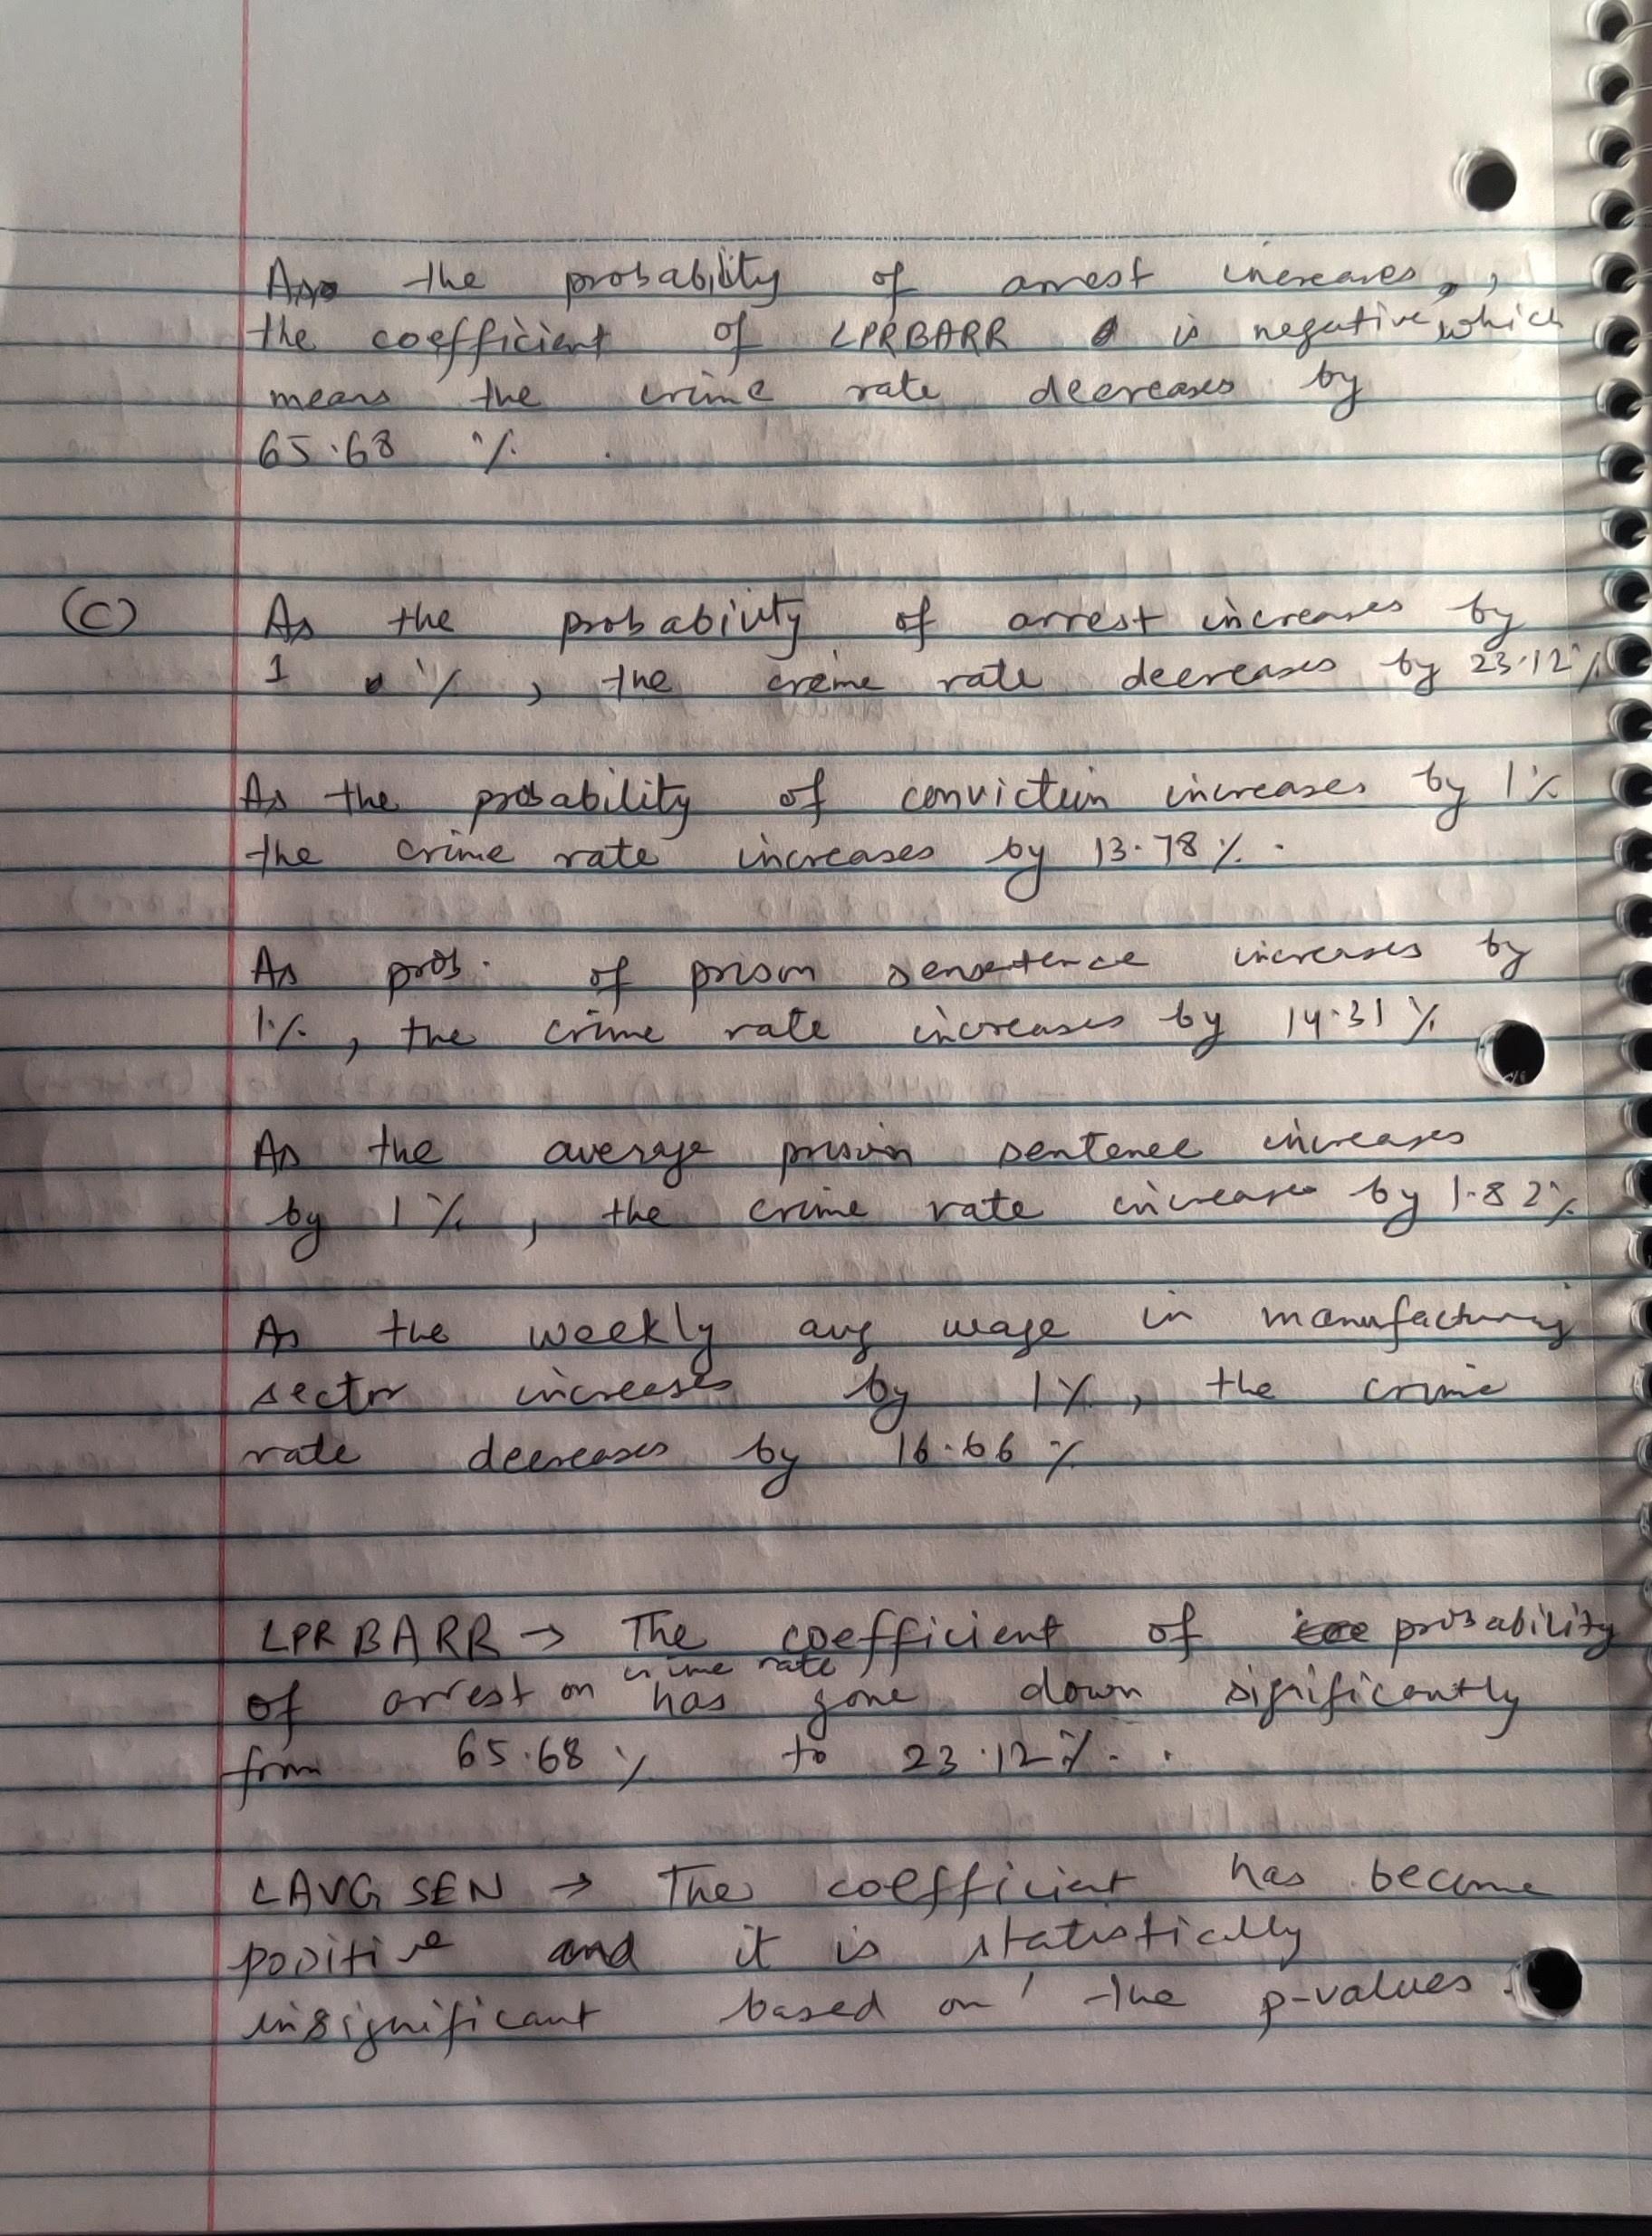 As the probability of arrest increases,
the coefficient of LPRBARR is negative, which
means the crime rate decreases by
65.68 %.
(C) As the probability of arrest increases by
1 %, the crime rate decreases by 23.12%
As the probability of conviction increases by 1%
the crime rate increases by 13.78%.
As prob. of prison sensetence increases by
1%, the crime rate increases by 14.31%
As the average prison sentence increases
by 1%, the crime rate increase by 1.82%
As the weekly avg wage in manufacturing
sector increases by 1%, the crime
rate decreases by 16.66%
LPRBARR → The coefficient of probability
of arrest on crime rate has gone down significantly
from 65.68% to 23.12%.
LAVGSEN → The coefficient has become
positive and it is statistically
insignificant based on the p-values.